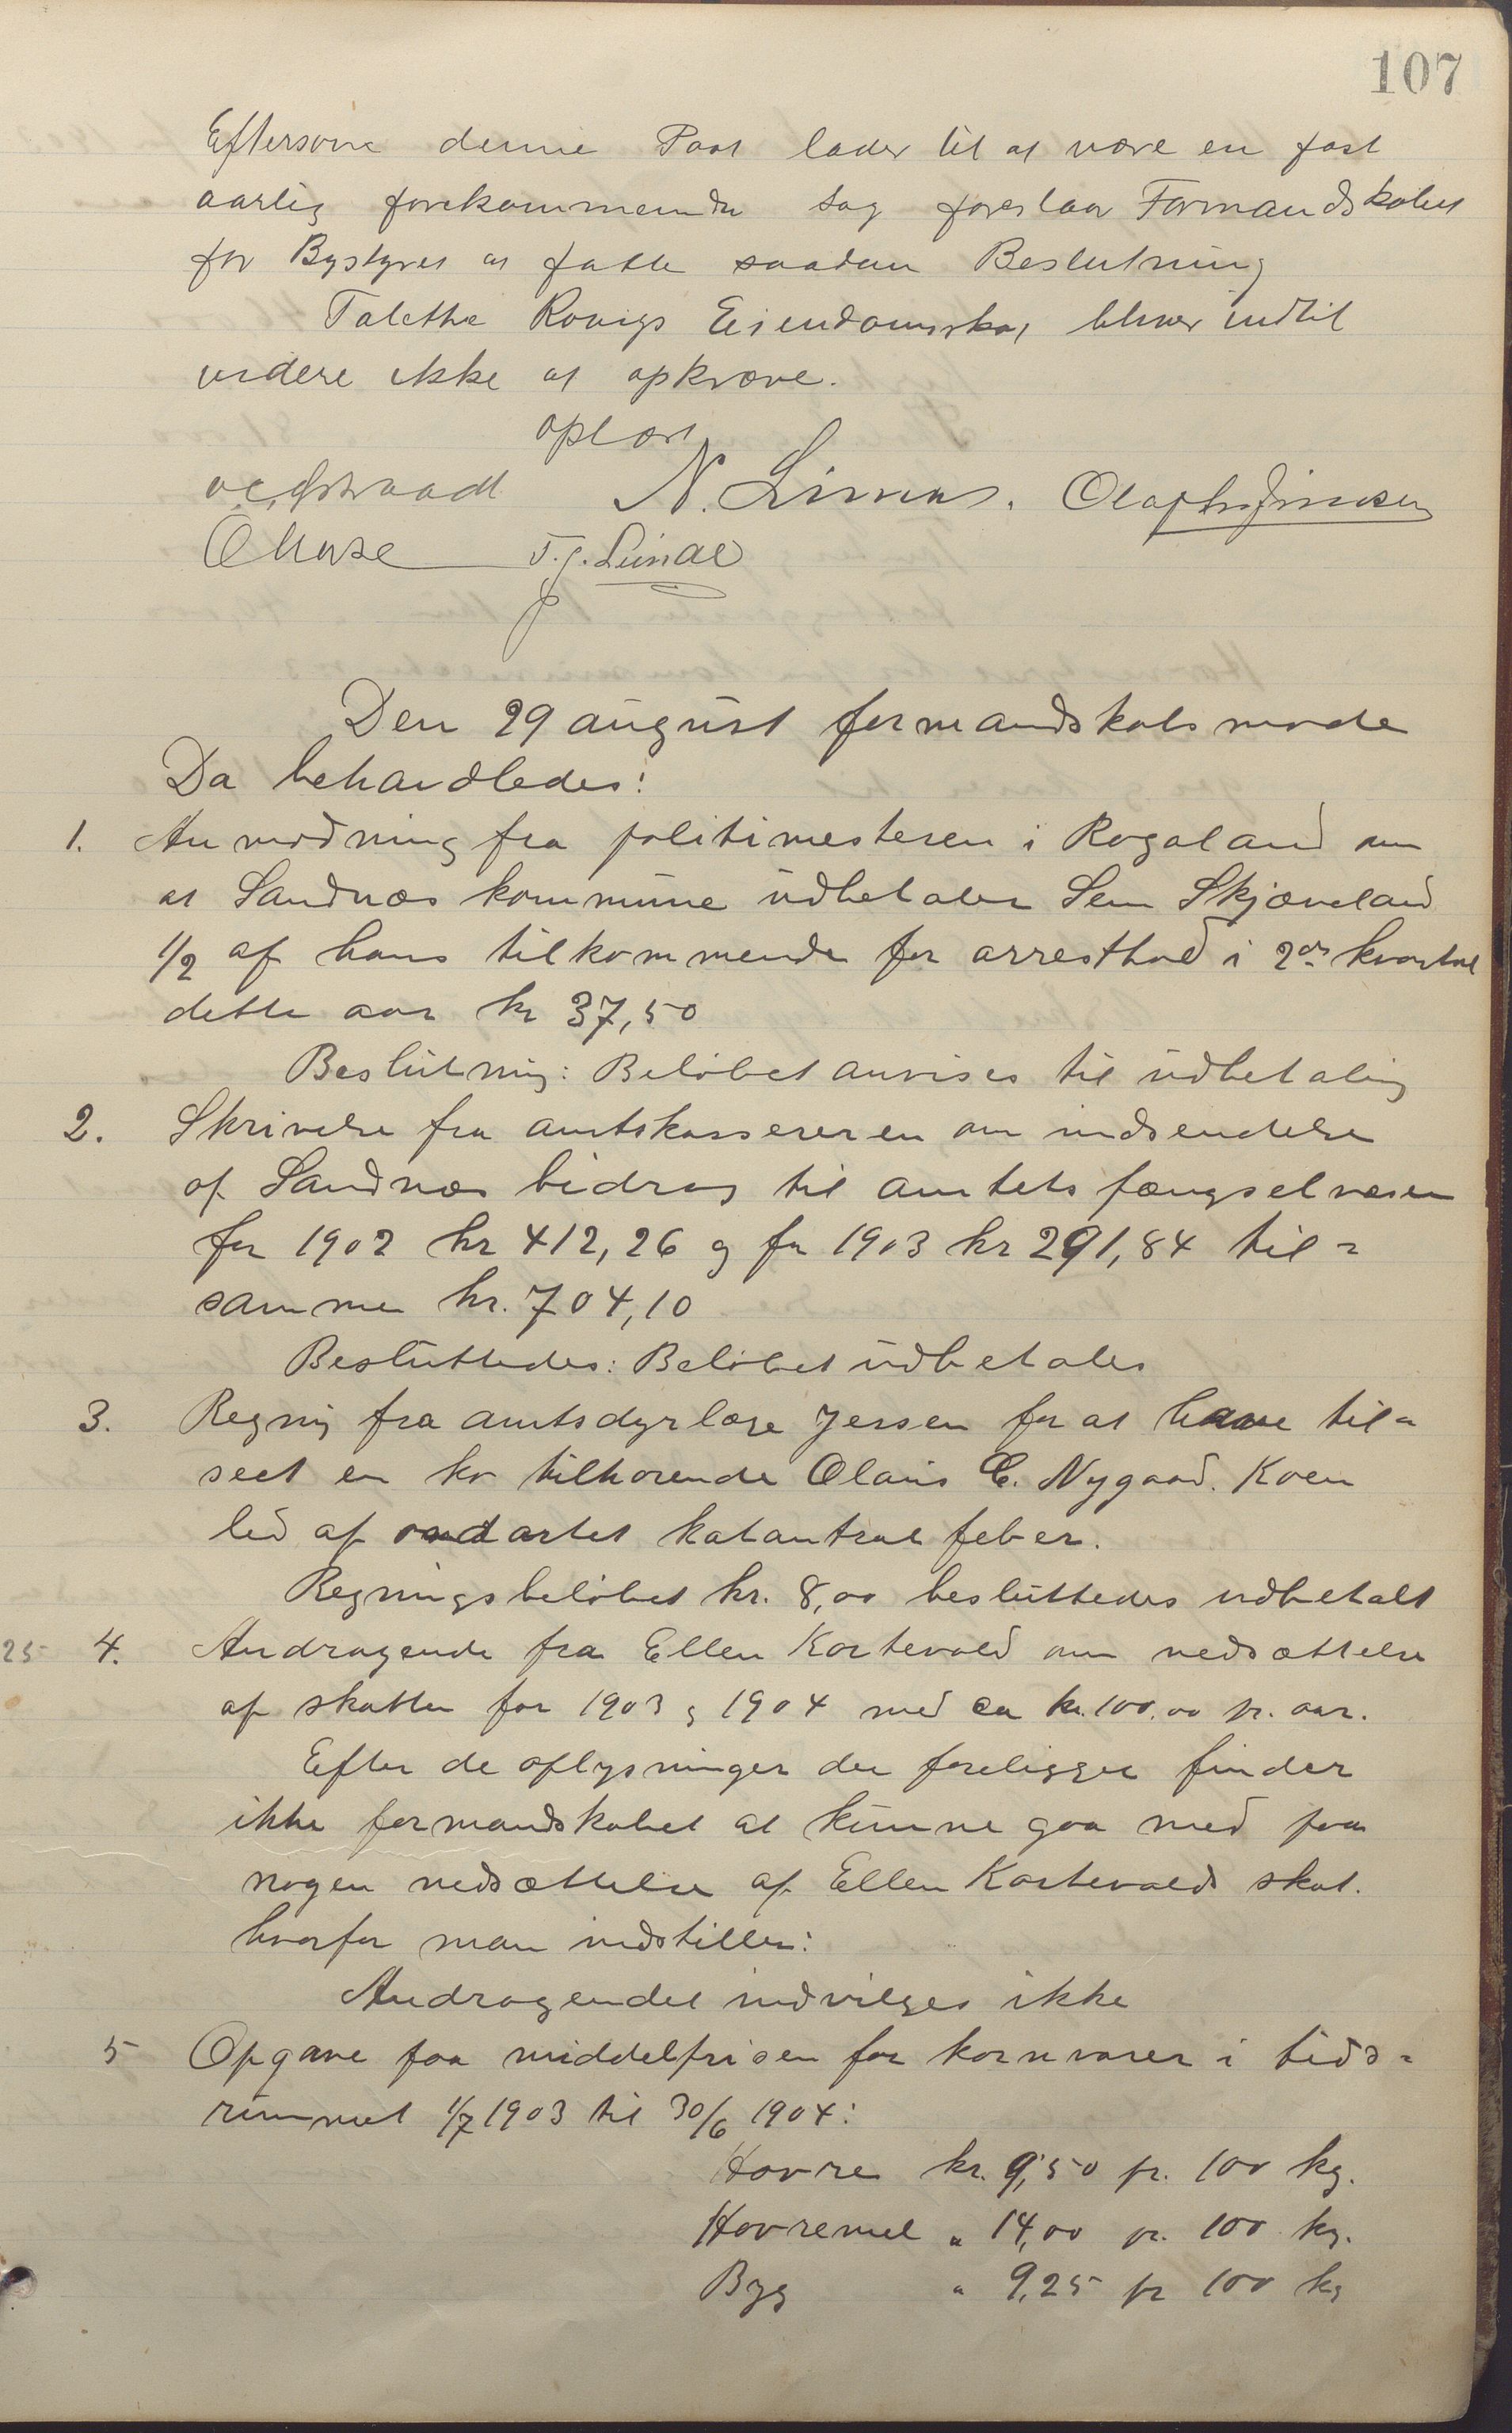 107
Eftersom denne Post lader til at være en fast
aarlig forekommende sag foreslaar Formandskabet
for Bystyret at fatte saadan Beslutning
Talethe Rovigs Eiendomsskat bliver indtil
videre ikke at opkræve.
oplæst
N. Simas.
T. G. Lunde
Den 29 august formandskabsmøde
Da behandledes:
1. Anmodning fra politimesteren i Rogaland om
at Sandnæs kommune udbetaler Sem Skjæveland
1/2 af hans tilkommende for arresthold i 2det kvartal
dette aar kr 37,50
Beslutning: Beløbet anvises til udbetaling
2. Skrivelse fra amtskassereren om indsendelse
af Sandnæs bidrag til amtets fængselvæsen
for 1902 kr 412,26 og for 1903 kr 291,84 til=
sammen kr. 704,10
Besluttedes: Beløbet udbetales
3. Regning fra amtsdyrlæge Jessen for at have til=
seet en ko tilhørende Olaus E. Nygaard. Koen
led af ondartet katarrhal feber.
Regningsbeløbet kr. 8,00 besluttedes udbetalt
25 4. Andragende fra Ellen Kortevold om nedsættelse
af skatten for 1903 og 1904 med ca kr. 100.00 pr. aar.
Efter de oplysninger der foreligger finder
ikke formandskabet at kunne gaa med paa
nogen nedsættelse af Ellen Kartevolds skat.
hvorfor man indstiller:
Andragendet indvilges ikke
5 Opgave paa middelprisen for kornvarer i tids=
rummet 1/7 1903 til 30/6 1904:
Havre kr. 9,50 pr. 100 kg.
Havremel " 14,00 pr. 100 kg.
Byg " 9,25 pr 100 kg